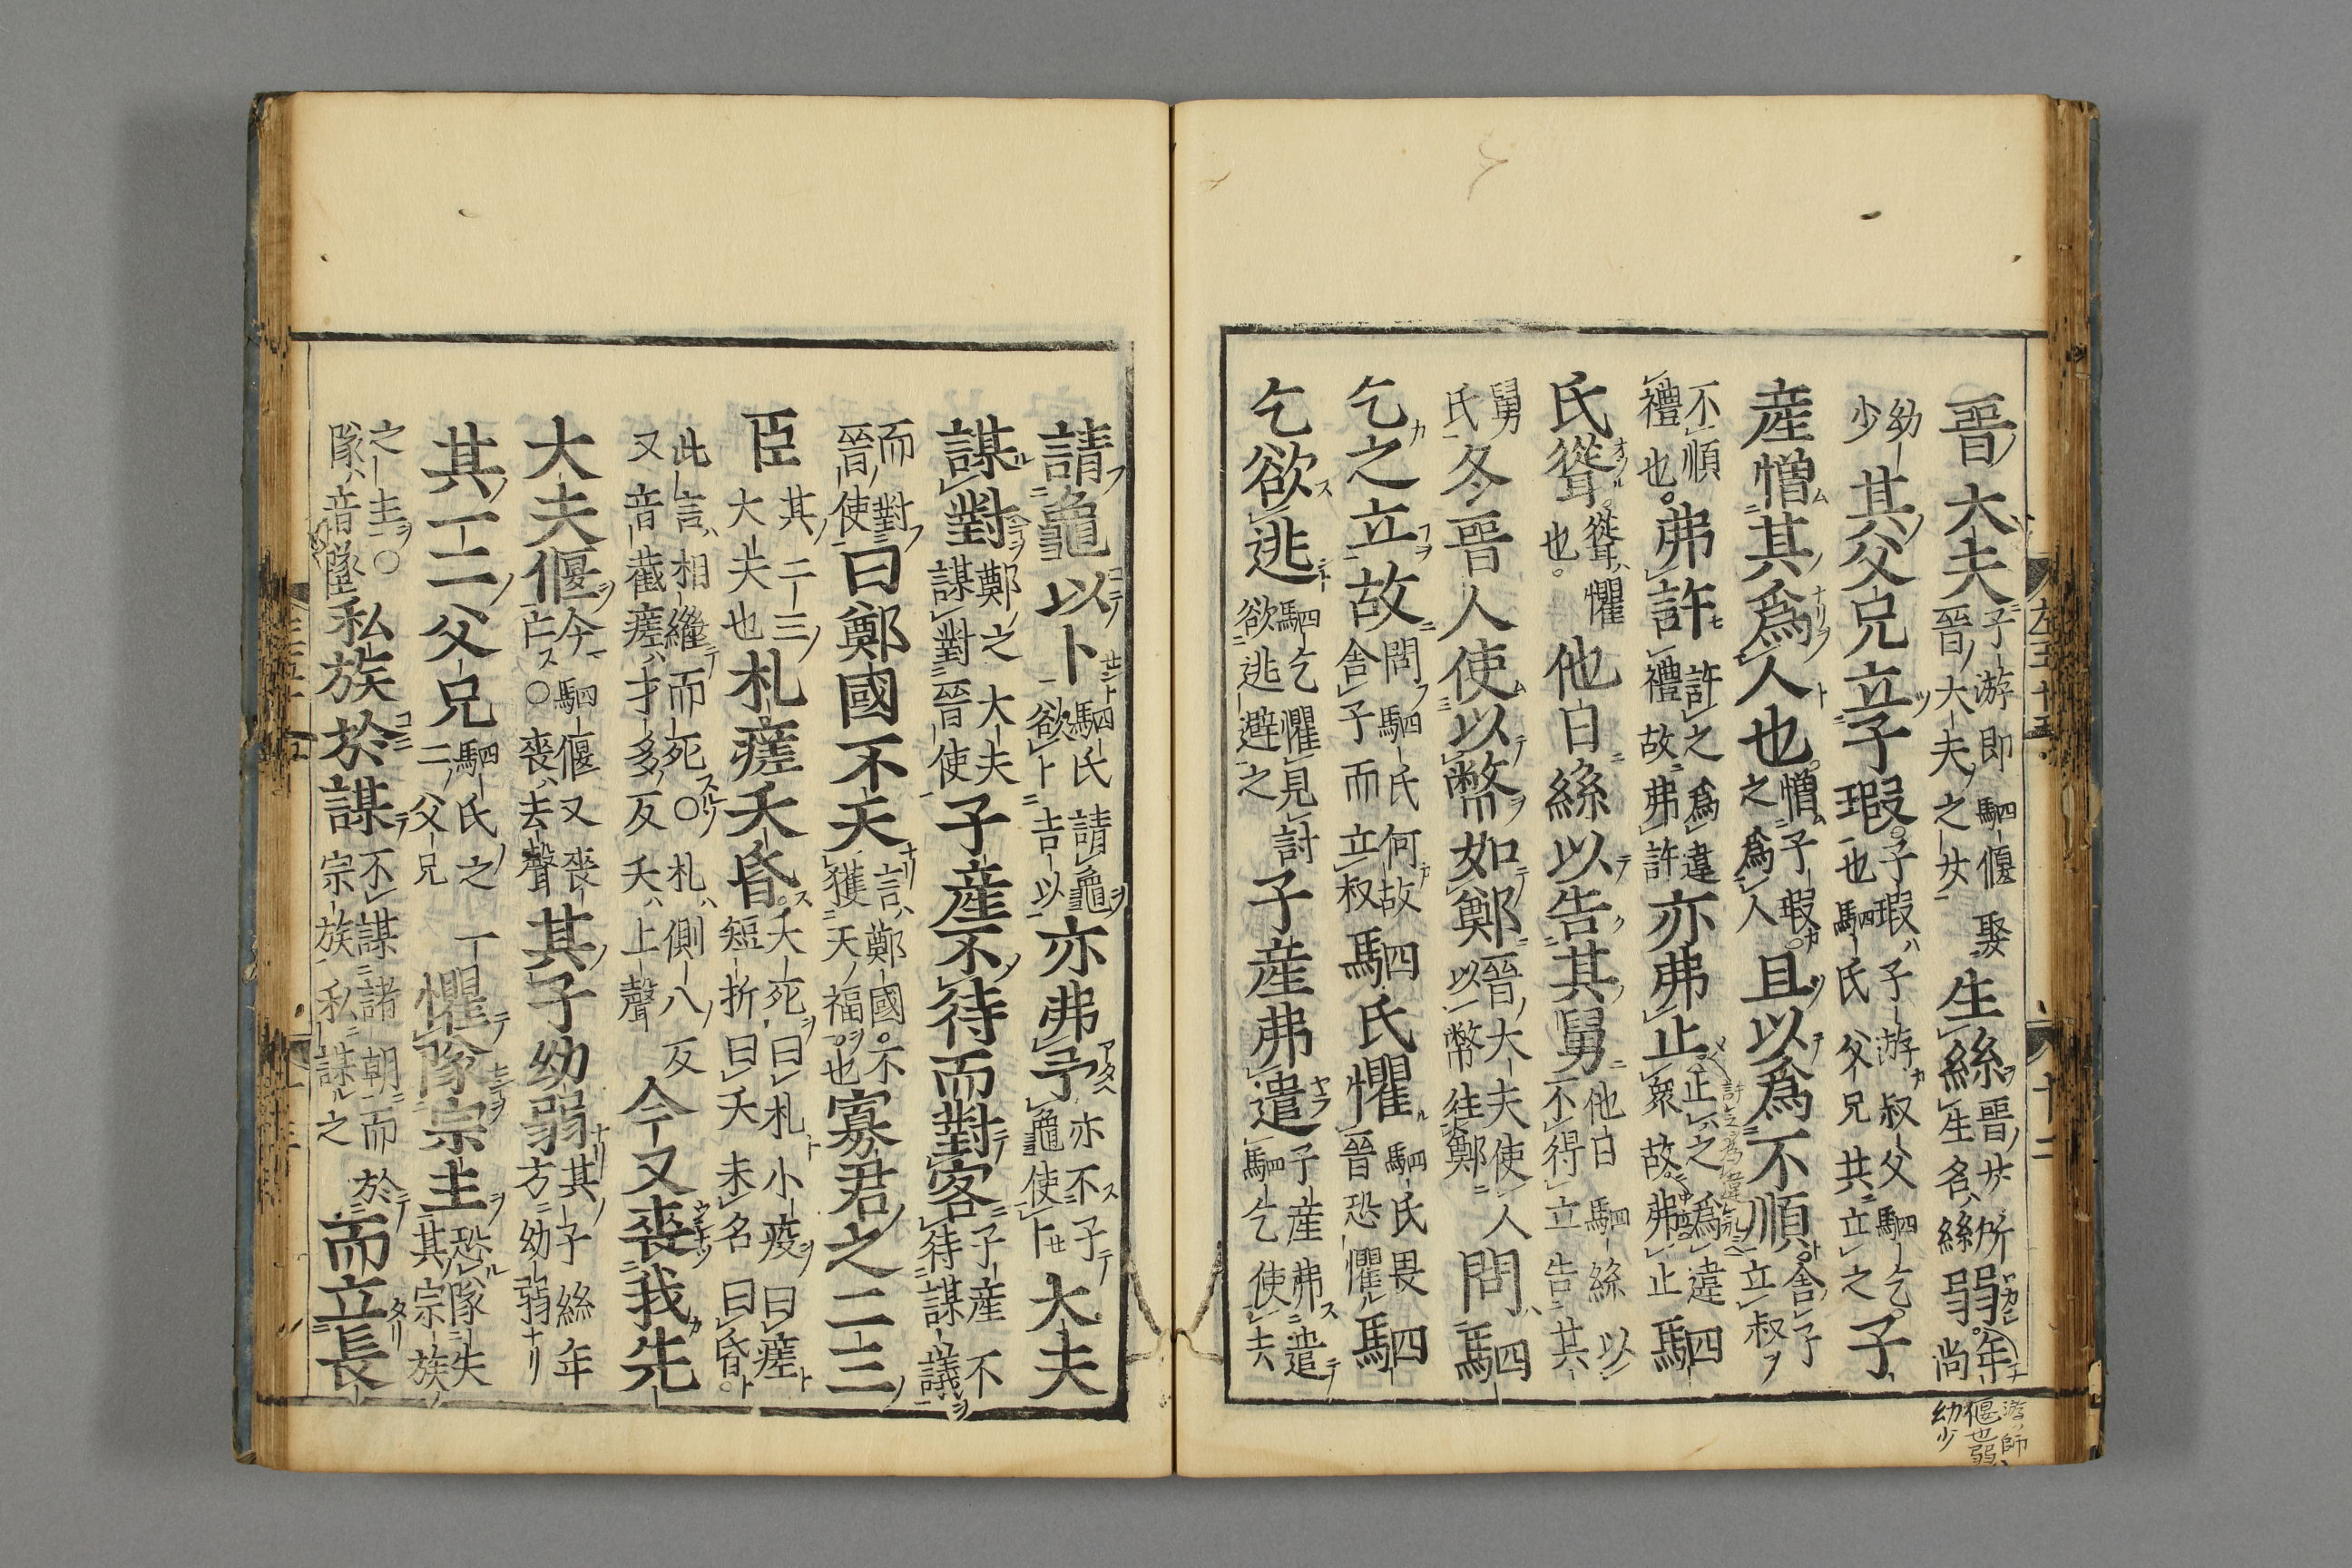 晉大夫子游即駟偃娶晉大夫之女生絲晉女所生名絲弱年尚
幼少其父兄立子瑕子瑕子游叔父駟乞也駟氏父兄共立之子
産憎其爲人也憎子瑕之爲人且以爲不順舍子立叔
不順禮也弗許許之爲違禮故弗許亦弗止止之爲違衆故弗止駟
氏聳聳懼也他日絲以告其舅他日駟絲以不得立告其
舅氏冬晉人使以幣如鄭晉大夫使人以幣往鄭問駟
乞之立故問駟氏何故舍子而立叔駟氏懼駟氏畏晉恐懼駟
乞欲逃駟乞懼見討欲逃避之子産弗遣子産弗遣駟乞使去
左三十五
十二
游師偃也弱幼少
請龜以卜駟氏請龜欲卜吉以亦弗予亦不予龜使卜大夫
謀對鄭之大夫謀對晉使子産不待而對客子産不待謀議
而對晉使曰鄭國不天言鄭國不獲天福也寡君之二三
臣其二三大夫也札瘥夭昏夭死曰札小疫曰瘥短折曰夭未名曰昏
此言相繼而死○札側八反又音截瘥才多反夭上聲今又喪我先
大夫偃今駟偃又喪亡○喪去聲其子幼弱其子絲年方幼弱
其一二父兄駟氏之一二父兄懼隊宗主恐隊失其宗族
之主○隊音墜私族於謀不謀諸朝而於宗族私謀之而立長